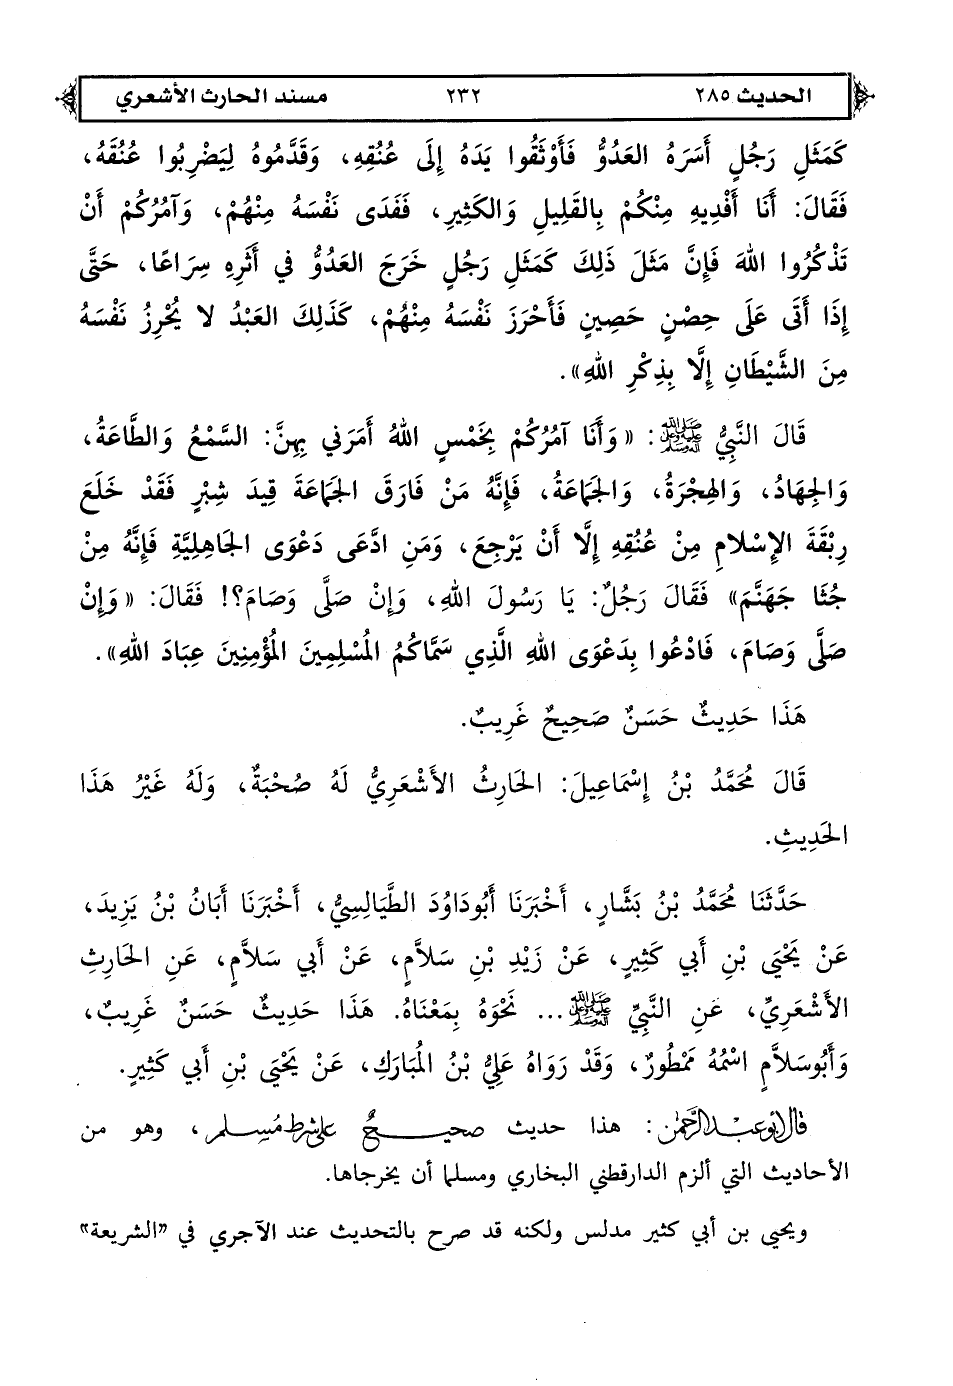 الحديث ٢٨٥ ٢٣٢ مسند الحارث الأشعري
كَمَثَلِ رَجُلٍ أَسَرَهُ العَدُوُّ فَأَوْثَقُوا يَدَهُ إِلَى عُنُقِهِ، وَقَدَّمُوهُ لِيَضْرِبُوا عُنُقَهُ،
فَقَالَ: أَنَا أَفْدِيهِ مِنْكُمْ بِالقَلِيلِ وَالكَثِيرِ، فَفَدَى نَفْسَهُ مِنْهُمْ، وَآمُرُكُمْ أَنْ
تَذْكُرُوا اللهَ فَإِنَّ مَثَلَ ذَلِكَ كَمَثَلِ رَجُلٍ خَرَجَ العَدُوُّ فِي أَثَرِهِ سِرَاعًا، حَتَّى
إِذَا أَتَى عَلَى حِصْنٍ حَصِينٍ فَأَحْرَزَ نَفْسَهُ مِنْهُمْ، كَذَلِكَ العَبْدُ لا يُحْرِزُ نَفْسَهُ
مِنَ الشَّيْطَانِ إِلَّا بِذِكْرِ اللهِ».
قَالَ النَّبِيُّ ﷺ: «وَأَنَا آمُرُكُمْ بِخَمْسٍ اللهُ أَمَرَنِي بِهِنَّ: السَّمْعُ وَالطَّاعَةُ،
وَالجِهَادُ، وَالهِجْرَةُ، وَالجَمَاعَةُ، فَإِنَّهُ مَنْ فَارَقَ الجَمَاعَةَ قِيدَ شِبْرٍ فَقَدْ خَلَعَ
رِبْقَةَ الإِسْلامِ مِنْ عُنُقِهِ إِلَّا أَنْ يَرْجِعَ، وَمَنِ ادَّعَى دَعْوَى الجَاهِلِيَّةِ فَإِنَّهُ مِنْ
جُثَا جَهَنَّمَ» فَقَالَ رَجُلٌ: يَا رَسُولَ اللهِ، وَإِنْ صَلَّى وَصَامَ؟! فَقَالَ: «وَإِنْ
صَلَّى وَصَامَ، فَادْعُوا بِدَعْوَى اللهِ الَّذِي سَمَّاكُمُ المُسْلِمِينَ المُؤْمِنِينَ عِبَادَ اللهِ».
هَذَا حَدِيثٌ حَسَنٌ صَحِيحٌ غَرِيبٌ.
قَالَ مُحَمَّدُ بْنُ إِسْمَاعِيلَ: الحَارِثُ الأَشْعَرِيُّ لَهُ صُحْبَةٌ، وَلَهُ غَيْرُ هَذَا
الحَدِيثِ.
حَدَّثَنَا مُحَمَّدُ بْنُ بَشَّارٍ، أَخْبَرَنَا أَبُودَاوُدَ الطَّيَالِسِيُّ، أَخْبَرَنَا أَبَانُ بْنُ يَزِيدَ،
عَنْ يَحْيَى بْنِ أَبِي كَثِيرٍ، عَنْ زَيْدِ بْنِ سَلاَّمٍ، عَنْ أَبِي سَلاَّمٍ، عَنِ الحَارِثِ
الأَشْعَرِيِّ، عَنِ النَّبِيِّ ﷺ... نَحْوَهُ بِمَعْنَاهُ. هَذَا حَدِيثٌ حَسَنٌ غَرِيبٌ،
وَأَبُوسَلاَّمٍ اسْمُهُ مَمْطُورٌ، وَقَدْ رَوَاهُ عَلِيُّ بْنُ المُبَارَكِ، عَنْ يَحْيَى بْنِ أَبِي كَثِيرٍ.
قال أبو عبد الرحمن: هذا حديث صحيحٌ على شرط مُسلم، وهو من
الأحاديث التي ألزم الدارقطني البخاري ومسلما أن يخرجاها.
ويحيى بن أبي كثير مدلس ولكنه قد صرح بالتحديث عند الآجري في «الشريعة»